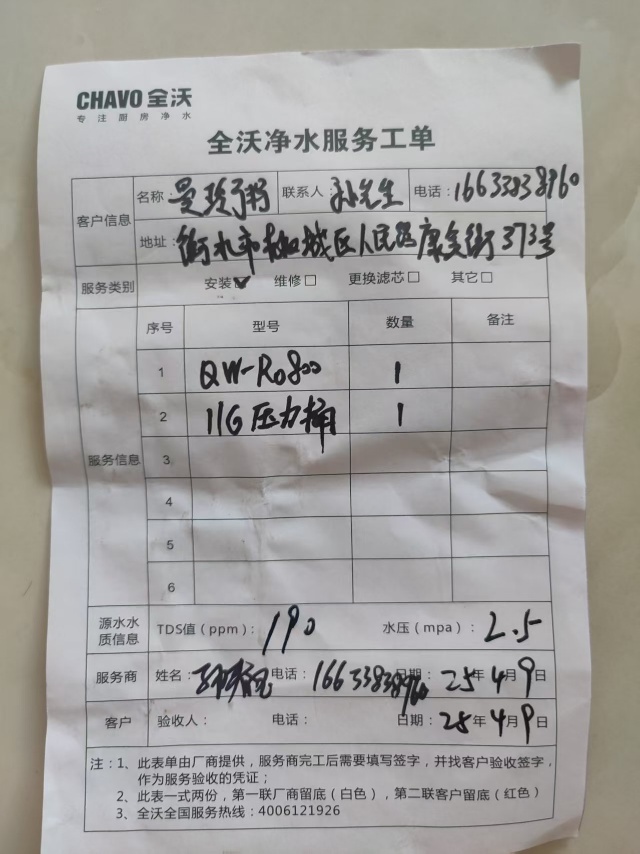 CHAVO 全沃
专注厨房净水
全沃净水服务工单
客户信息
名称： 曼玲粥 联系人： 孙先生 电话：16633838960
地址： 衡水市桃城区人民路康复街373号
服务类别 安装☑ 维修□ 更换滤芯□ 其它□
服务信息
序号 型号 数量 备注
1 QW-RO800 1
2 11G压力桶 1
3
4
5
6
源水水质信息 TDS值（ppm）： 190 水压（mpa）： 2.5
服务商 姓名： 电话： 16633838960 日期： 25年4月9日
客户 验收人： 电话： 日期： 25年4月9日
注：1、此表单由厂商提供，服务商完工后需要填写签字，并找客户验收签字，
作为服务验收的凭证；
2、此表一式两份，第一联厂商留底（白色），第二联客户留底（红色）
3、全沃全国服务热线：4006121926